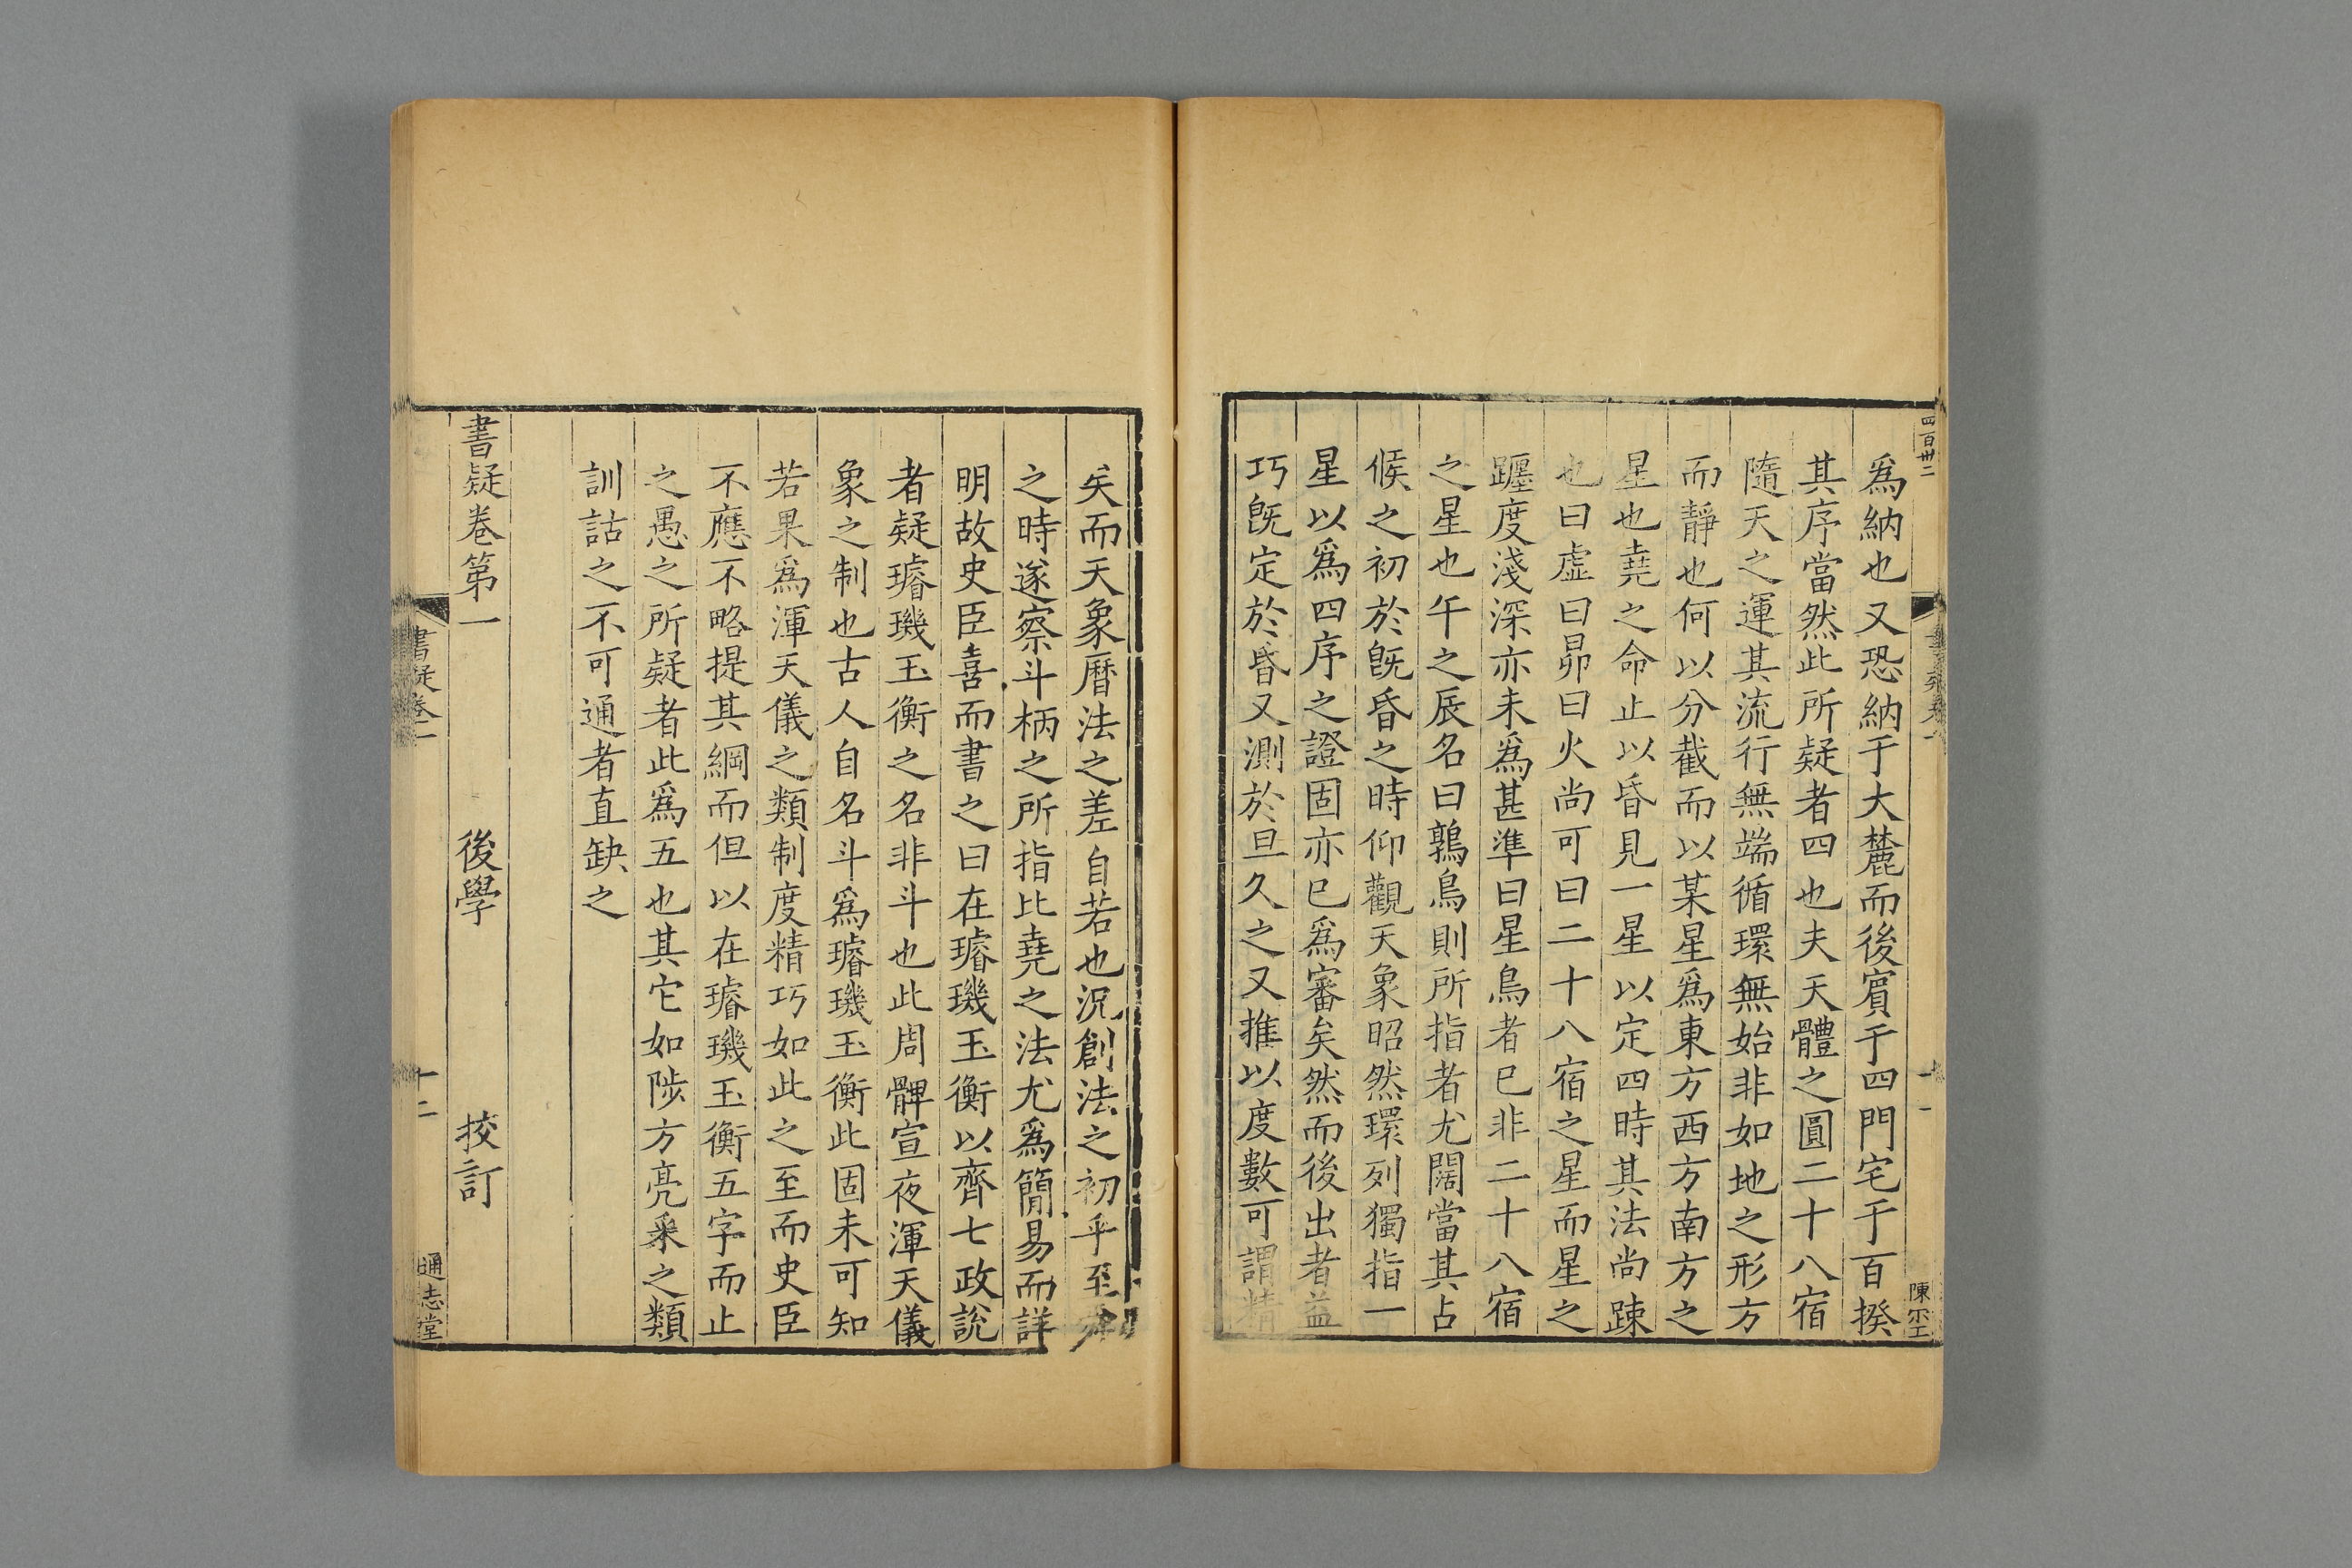 四百卅二
爲納也又恐納于大麓而後賓于四門宅于百揆
其序當然此所疑者四也夫天體之圓二十八宿
隨天之運其流行無端循環無始非如地之形方
而靜也何以分截而以某星爲東方西方南方之
星也堯之命止以昏見一星以定四時其法尚踈
也曰虛曰昴曰火尚可曰二十八宿之星而星之
躔度淺深亦未爲甚準曰星鳥者已非二十八宿
之星也午之辰名曰鶉鳥則所指者尤闊當其占
候之初於旣昏之時仰觀天象昭然環列獨指一
星以爲四序之證固亦已爲審矣然而後出者益
巧旣定於昏又測於旦久之又推以度數可謂精
矣而天象曆法之差自若也況創法之初乎至舜
之時遂察斗柄之所指比堯之法尤爲簡易而詳
明故史臣喜而書之曰在璿璣玉衡以齊七政說
者疑璿璣玉衡之名非斗也此周髀宣夜渾天儀
象之制也古人自名斗爲璿璣玉衡此固未可知
若果爲渾天儀之類制度精巧如此之至而史臣
不應不略提其綱而但以在璿璣玉衡五字而止
之愚之所疑者此爲五也其它如陟方亮采之類
訓詁之不可通者直缺之
書疑卷第一 後學 挍訂
書疑卷一 十二 通志堂